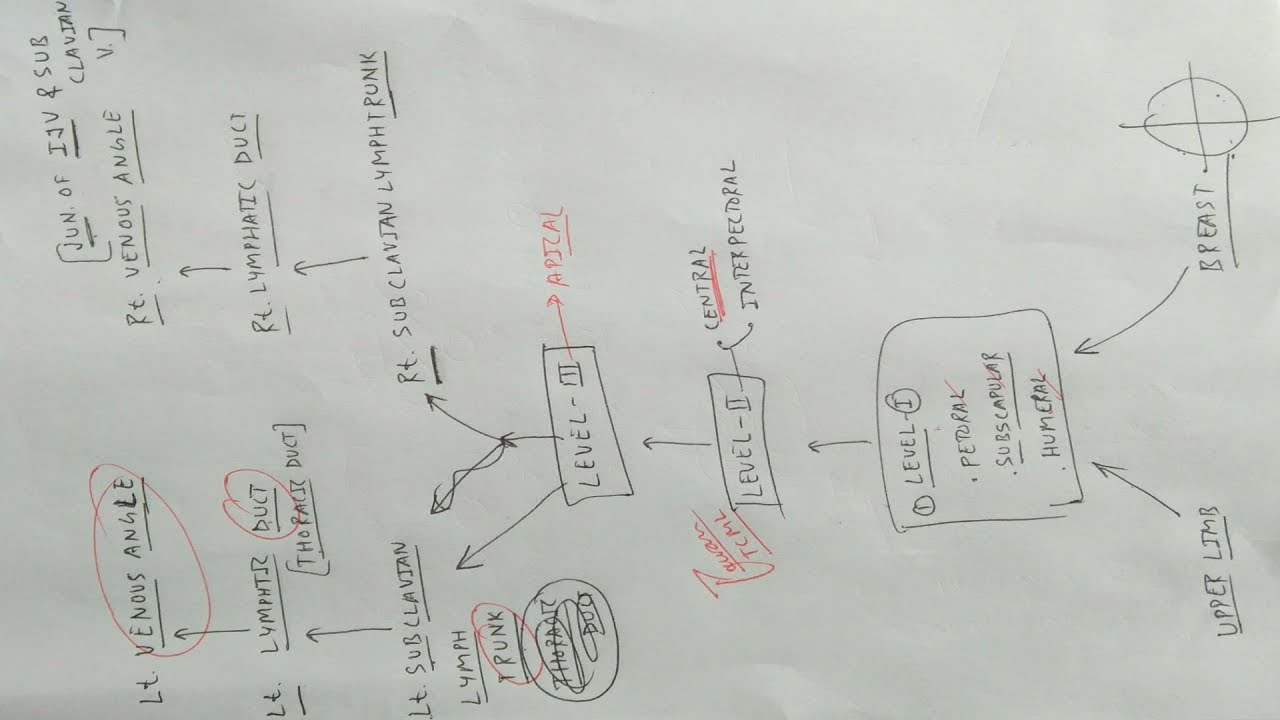 [JUN. OF IJV & SUB
CLAVIAN
V.]
Lt. VENOUS ANGLE
Rt. VENOUS ANGLE
Lt. LYMPHTIC DUCT
[THORACIC DUCT]
Rt. LYMPHATIC DUCT
Lt. SUBCLAVIAN
LYMPH
TRUNK
THORACIC
DUCT
Rt. SUBCLAVIAN LYMPH TRUNK
LEVEL-III
APICAL
LEVEL-II
CENTRAL
INTERPECTORAL
① LEVEL-I
. PETORAL
. SUBSCAPULAR
. HUMERAL
UPPER LIMB
BREAST